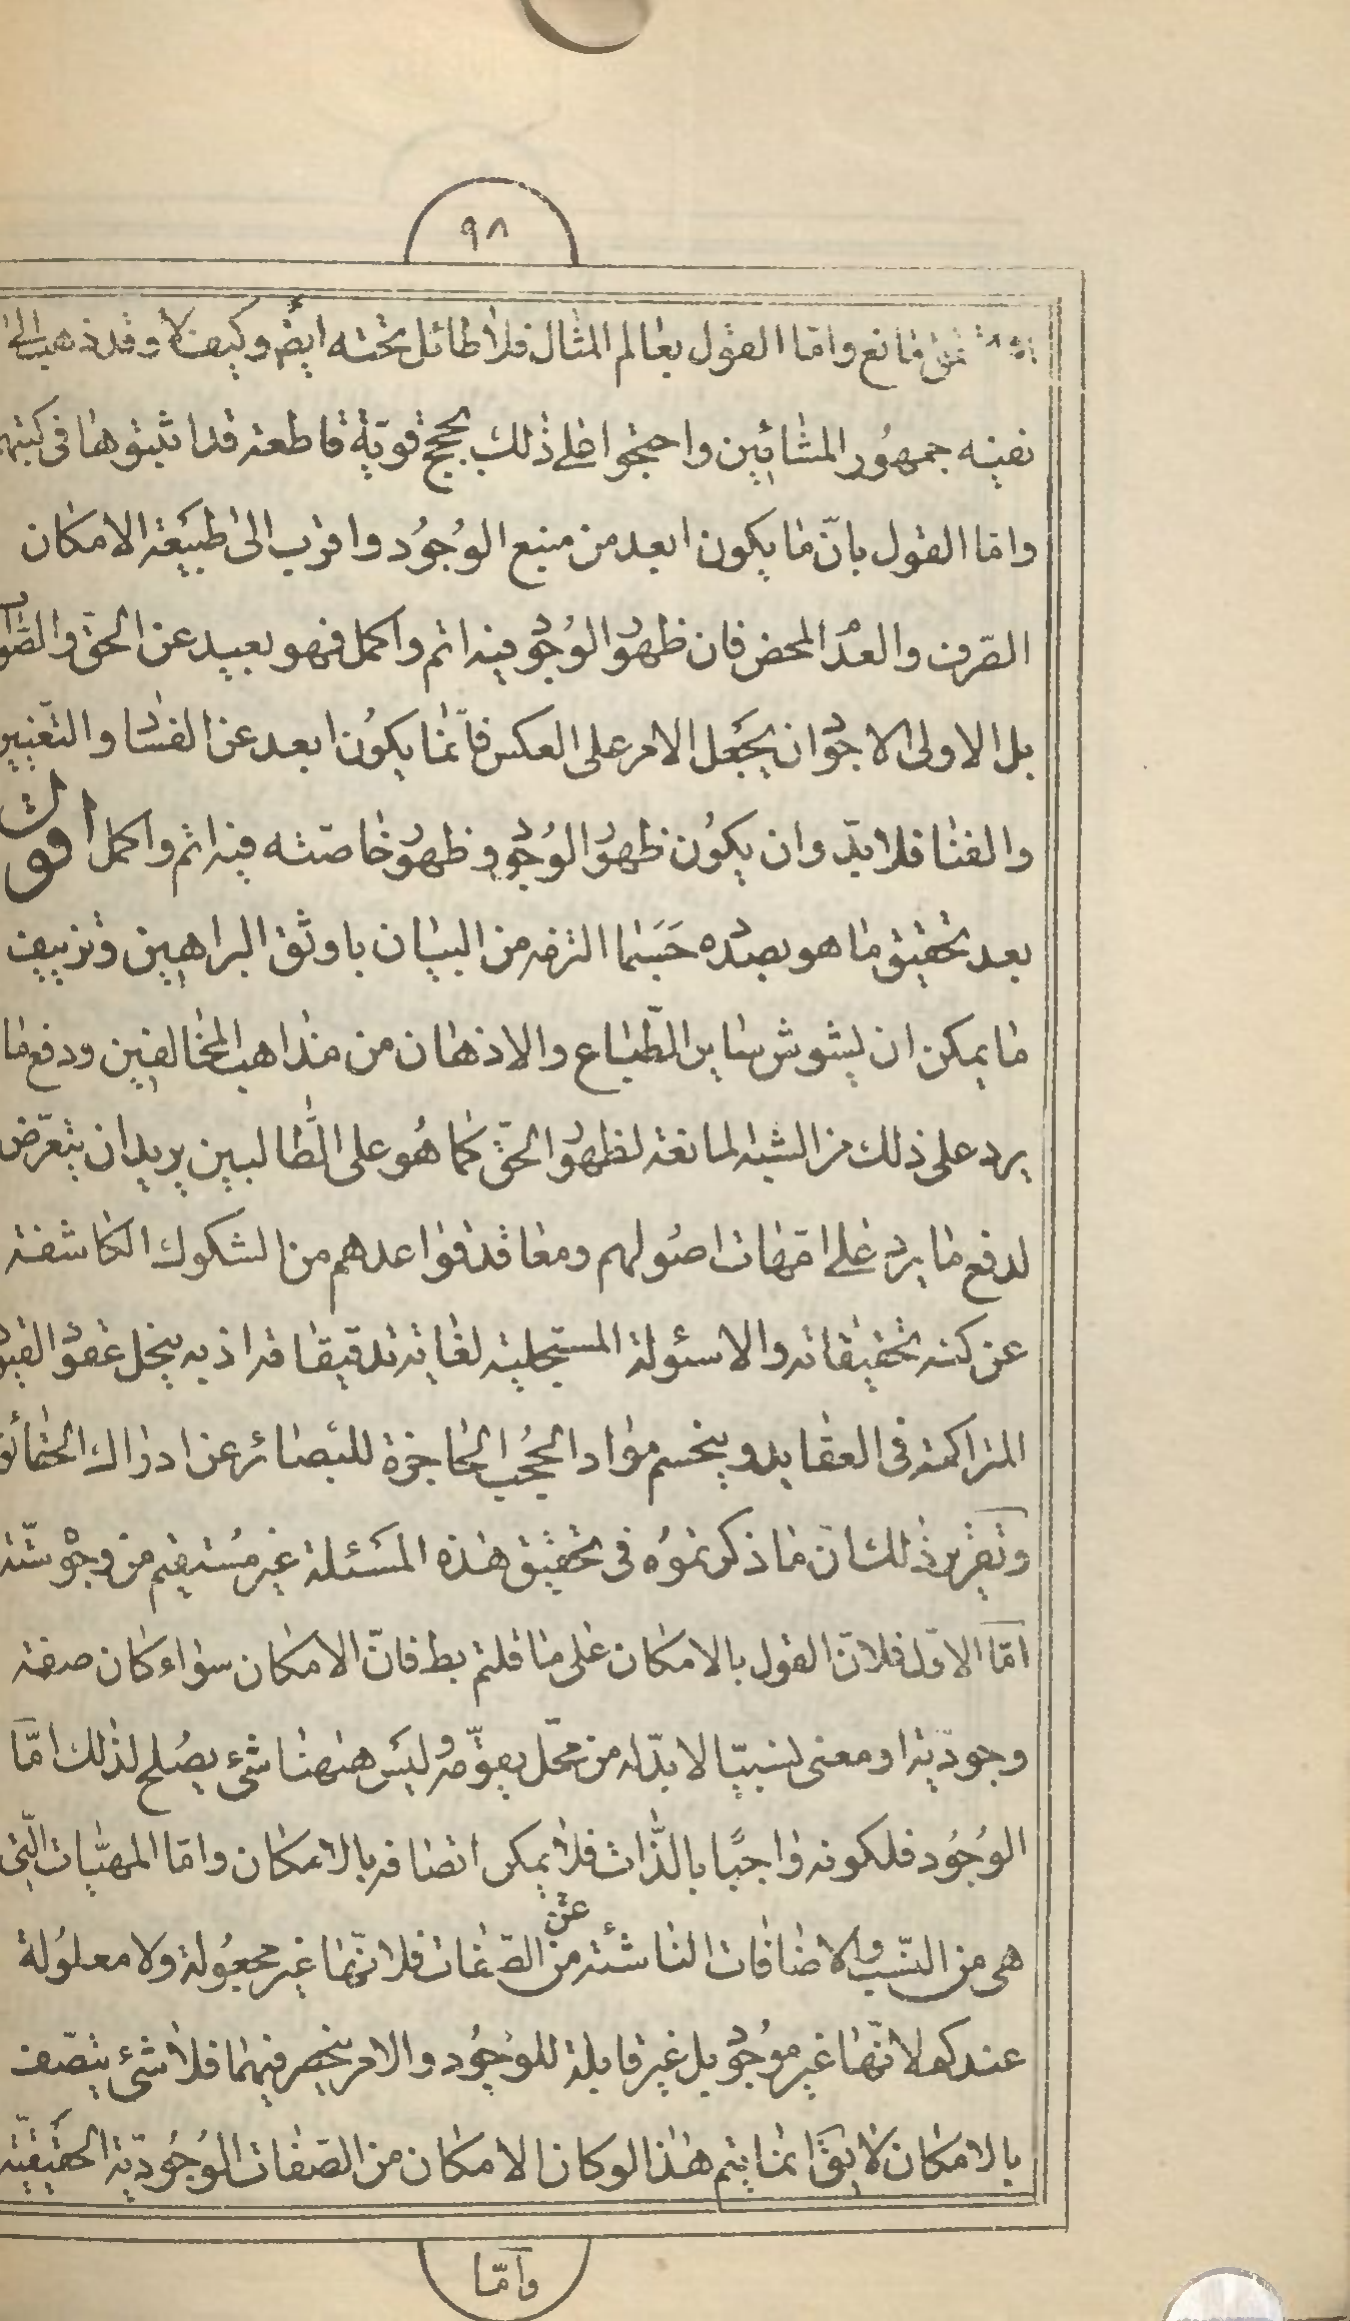 ٩٨
مانع واما القول بعالم المثال فلا طائل تحته ايضً وكيف لا وقد ذهب الى
نفيه جمهُور المشائيين واحتجّوا على ذلك بحجج قويّة قاطعة قد اثبتوها فى كتبهم
واما القول بانّ ما يكون ابعد من منبع الوجُود واقرب الى طبيَعة الامكان
الصّرف والعدم المحض فان ظهور الوُجود فيه اتم واكمل فهو بعيد عن الحقّ والصّواب
بل الاولى الاجود ان يجَعل الامر على العكس فانّما يكُون ابعد عن الفساد والتّغيير
والفنا فلا بدّ وان يكُون ظهور الوُجود وظهور خاصّته فيه اتم واكمل اقول
بعد تحقيق ما هو بصدده حَسَبما التزمه من البيان باوثق البراهين وتزييف
ما يمكن ان يشوش ساير الطّباع والاذهان من مذاهب المخالفين ودفع ما
يرد على ذلك من الشبه المانعة لظهور الحقّ كما هُو على الطَّالبين يريد ان يتعرّض
لدفع ما يرد على امّهات اصُولهم ومعاقد قواعدهم من الشكوك الكاشفة
عن كنه تحقيقاته والاسئولة المستجلية لغاية تدقيقاته اذ به ينحل عقود القيود
المتراكمة فى العقايد وينحسم مواد الحجُب الحاجزة للبَصائر عن ادراك الحقائق
وتقرير ذلك انّ ما ذكرتموُه فى تحقيق هذه المسَئلة غير مُستقيم من وجوه ستّة
امّا الاوّل فلانّ القول بالامكان على ما قلتم بط فانّ الامكان سواء كان صفة
وجوديّة او معنى نسبيّا لا بدّ له من محّل يقوّمه وليَس هيهنا شئ يصُلح لذلك امّا
الوُجُود فلكونه واجبًا بالذّات فلا يمكن اتصافه بالامكان واما المهيّات الّتى
هى من النّسب والاضافات الناشئة من الصّفات فلانّها غير مجعُولة ولا معلوُلة
عندكم لانّها غير موُجود بل غير قابلة للوجُود والامر ينحصر فيهما فلا شئ يتصّف
بالامكان لا يقَ انما يتم هذا لو كان الامكان من الصّفات الوُجُوديّة الحقيقيّة
وامّا